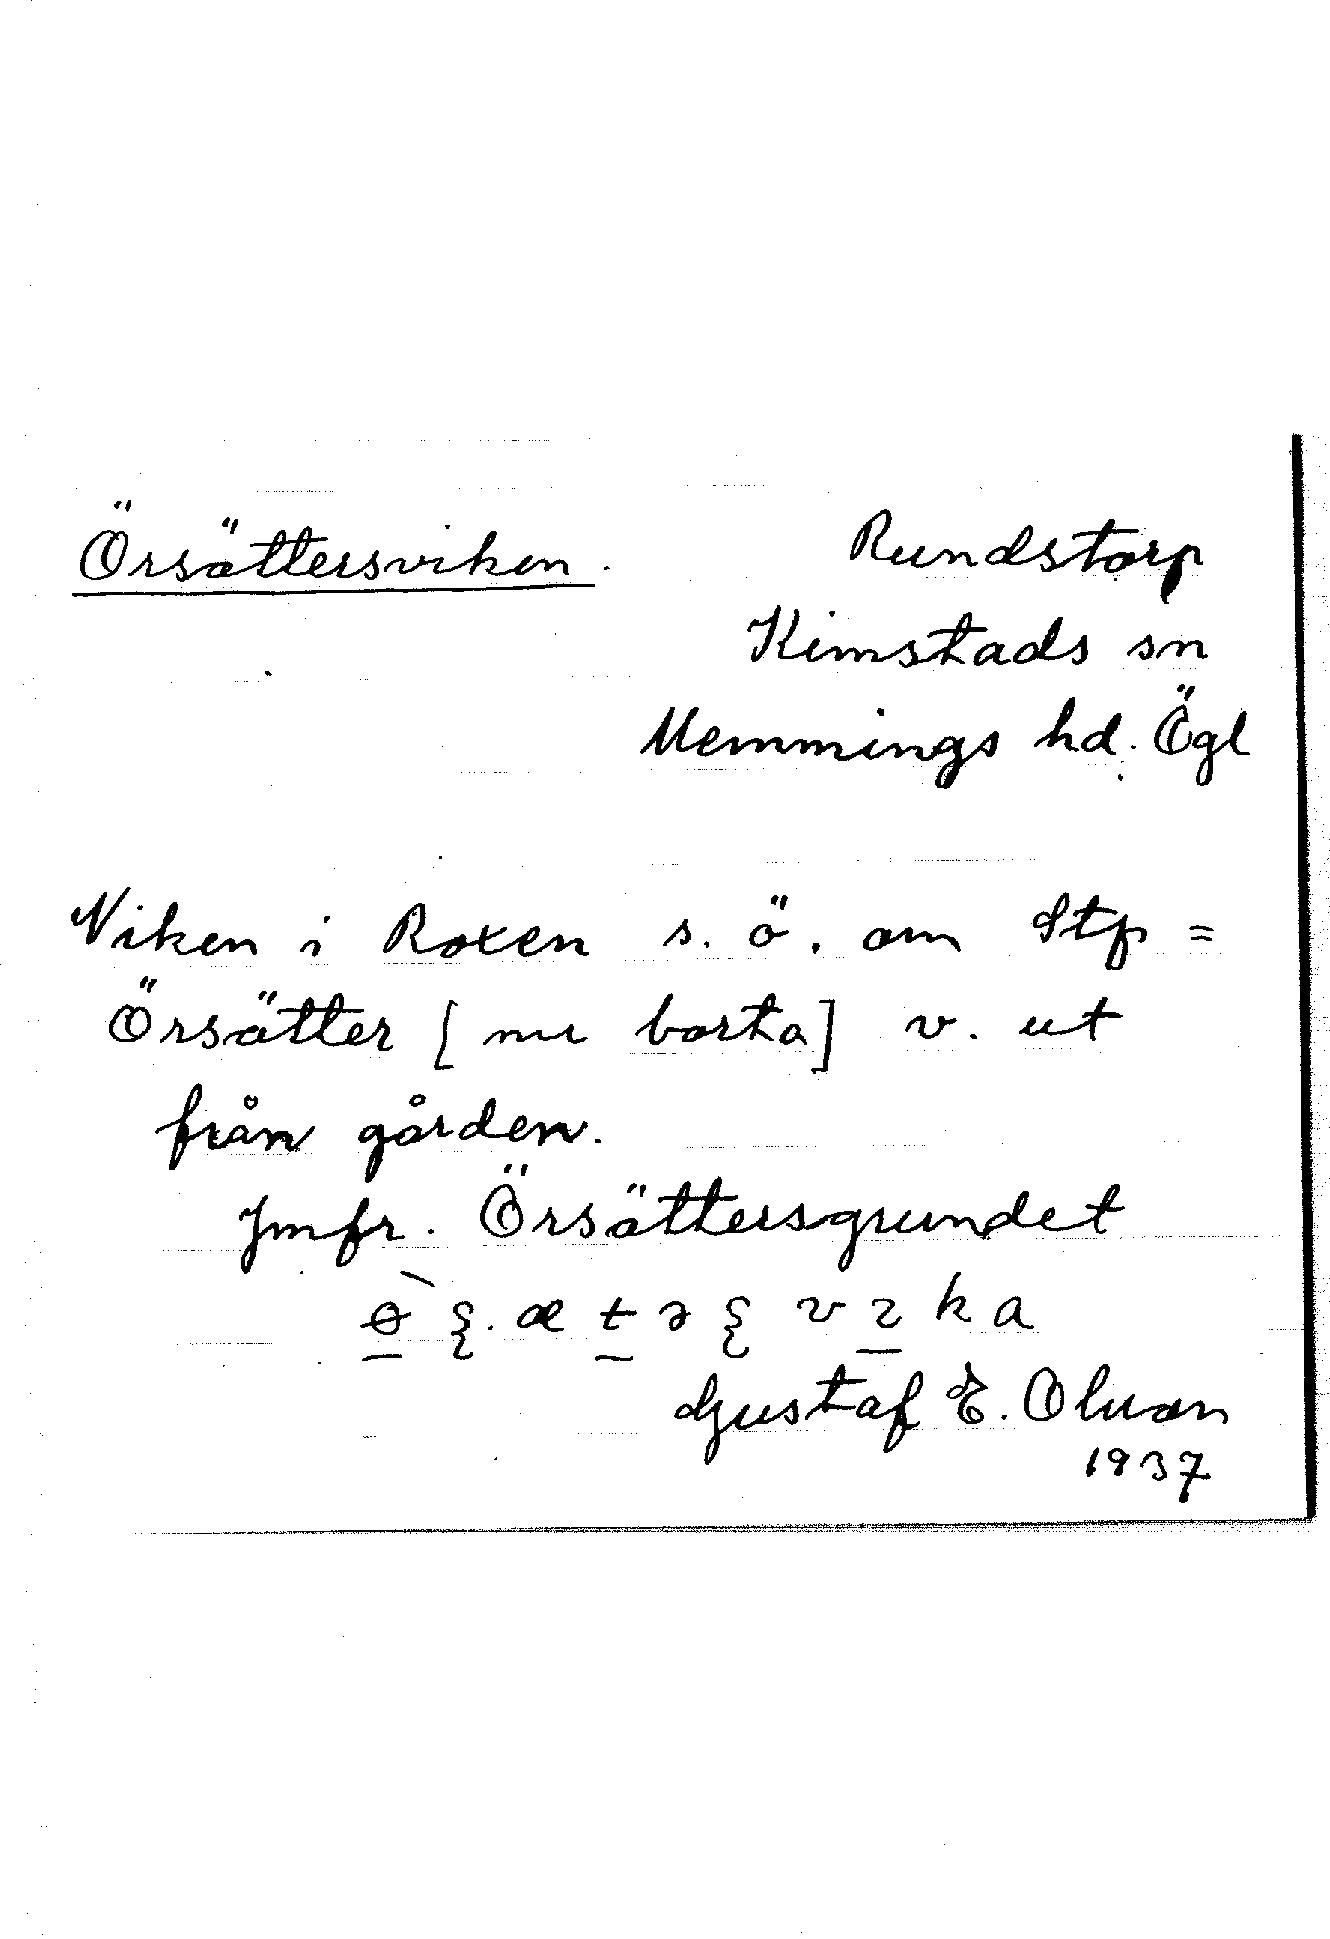 Örsättersviken.
Rundstorp
Kimstads sn
Memmings hd. Ögl
Viken i Roxen s. ö. om Stp =
Örsätter [nu borta] v. ut
från gården.
Jmfr. Örsättersgrundet
Gustaf E. Olsson
1937